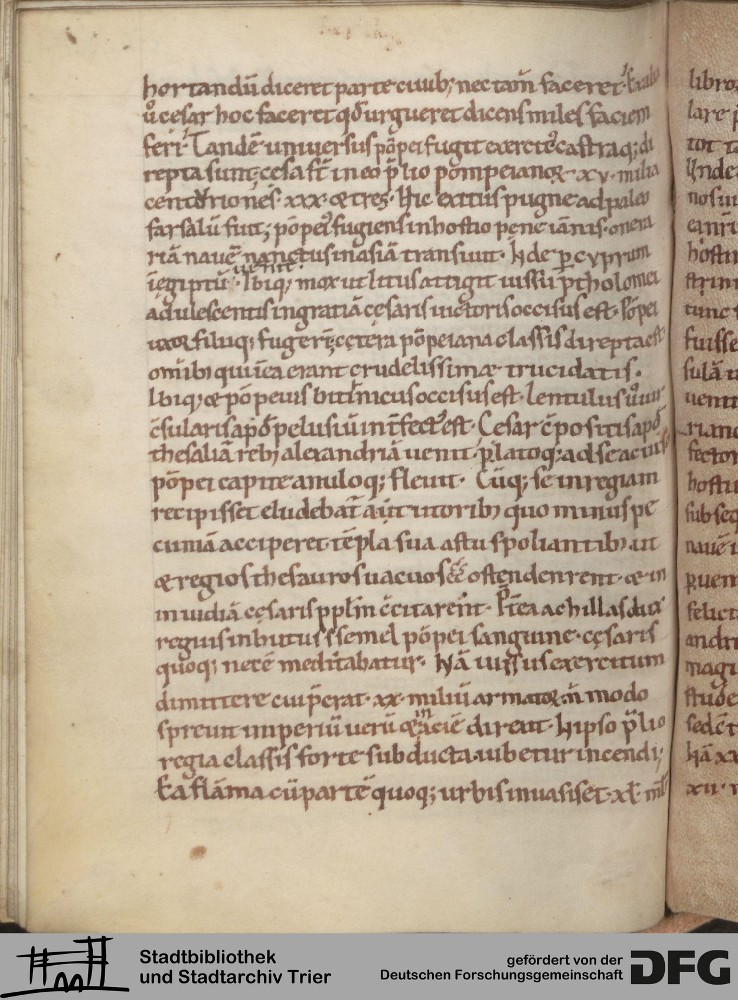 hortandū diceret parte ciuib; nec tam̄ faceret
u̇ cesar hoc faceret qd̄ urgueret dicens miles faciem
feri. Tandē uniuersus pōpei fugit exercitꝰ castraq; di
repta sunt; cęsa st̄ in eo p̄lio pompeianoꝝ xv milia
centuriones xxx. & tres. Hic exitus pugne ad paleo
farsalū fuit; pōpeiꝰ fugiens in hostio pene ianis. onera
riā nauē nanctus in asiā transiuit. Inde p cyprum
iegiptū uenit. Ibiq; mox ut litus attigit iussu ptholomei
adulescentis in gratiā cęsaris uictoris occisus est. Pōpei
uxor filiiq; fugerē; cętera pōpeiana classis direpta est
omib; qui in ea erant crudelissimæ trucidatis.
Ibiq; & pōpeius bitinicus occisus est. Lentulus u̇ uir
cs̄ularis apd̄ pelusiū intfectꝰ est. Cesar cpositis apd̄
thesaliā reb; alexandriā uenit. platoq; ad se ac uiso
pōpei capite anuloq; fleuit. Cūq; se in regiam
recipisset eludebat̄ a tutorib; quo minus pe
cuniā acciperet tēpla sua astu spoliantib; ut
& regios thesauros uacuos ēē ostendenrent & in
inuidiā cęsaris pplm̄ ccitarent. Ptea achillas dux
regius inbutus semel pōpei sanguine. cęsaris
quoq; necē meditabatur. Nā iussus exercitum
dimittere cui perat. xx. miliū armatoꝝ n̄ modo
spreuit imperiū uerū & in aciē direxit. In ipso p̄lio
regia classis forte subducta. iubetur incendi;
Ea flāma cū partē quoq; urbis inuasiset. xl. mil
libro
lare
tot
Unde
nosui
hostiu
tunc
fuisse
sulā
uenit
riand
fector
hostiu
subseq
nauē
puem
felici
andri
magi
stude
sedēt
Nā xx
xii
Stadtbibliothek
und Stadtarchiv Trier
gefördert von der
Deutschen Forschungsgemeinschaft
DFG